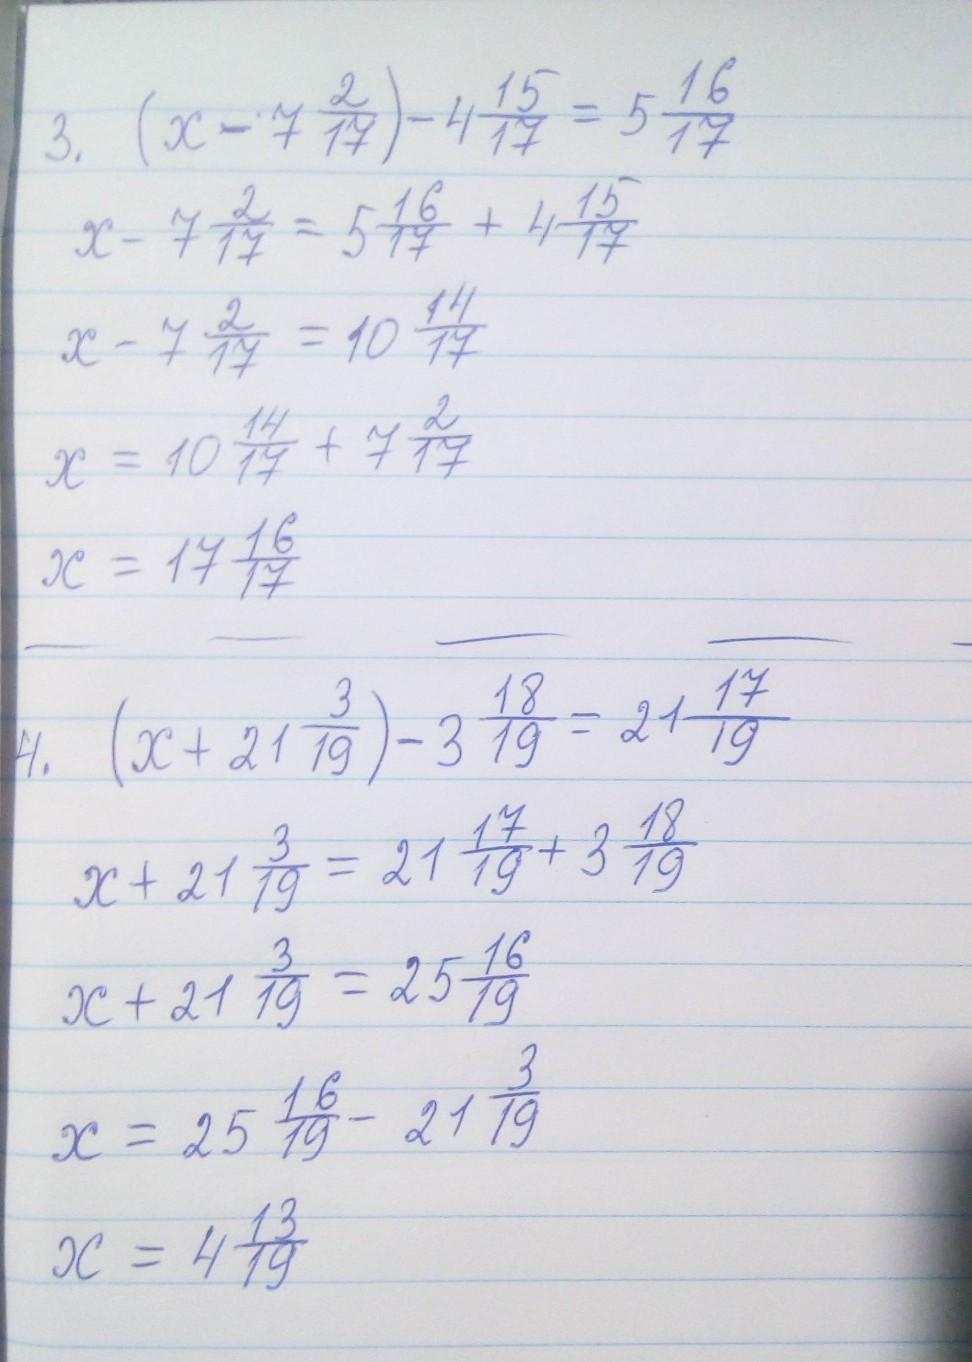 3. (x - 7 2/17) - 4 15/17 = 5 16/17
x - 7 2/17 = 5 16/17 + 4 15/17
x - 7 2/17 = 10 14/17
x = 10 14/17 + 7 2/17
x = 17 16/17
4. (x + 21 3/19) - 3 18/19 = 21 17/19
x + 21 3/19 = 21 17/19 + 3 18/19
x + 21 3/19 = 25 16/19
x = 25 16/19 - 21 3/19
x = 4 13/19